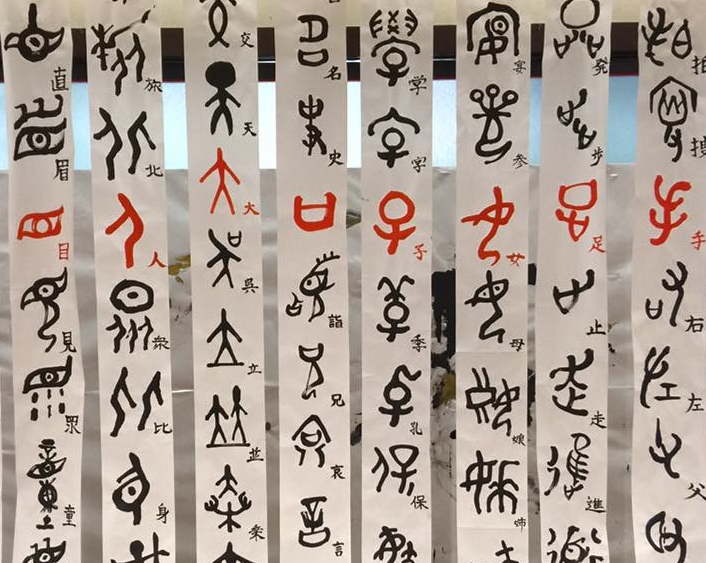 拍捜手右左父
発歩足止走進
宴参女母娘姉
学字子季孔保
名史口詣兄哀言
交天大呉立並
旅北人衆比身
直眉目見眾童